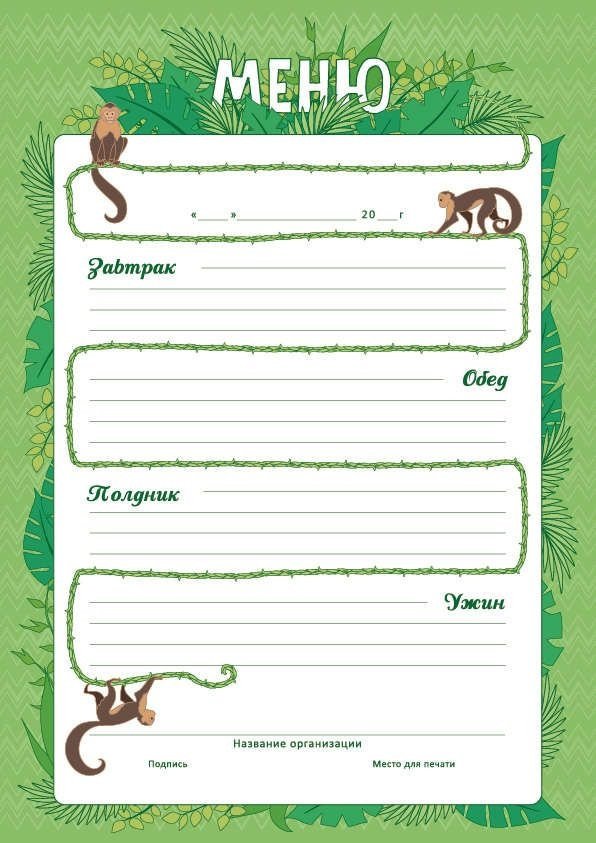 МЕНЮ
«____»__________________ 20___г
Завтрак
Обед
Полдник
Ужин
Название организации
Подпись Место для печати